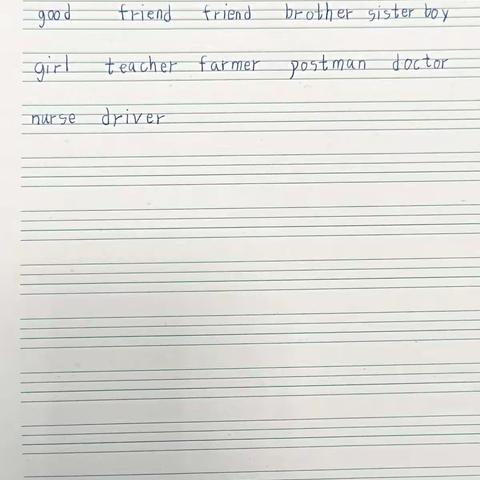 good friend friend brother sister boy
girl teacher farmer postman doctor
nurse driver